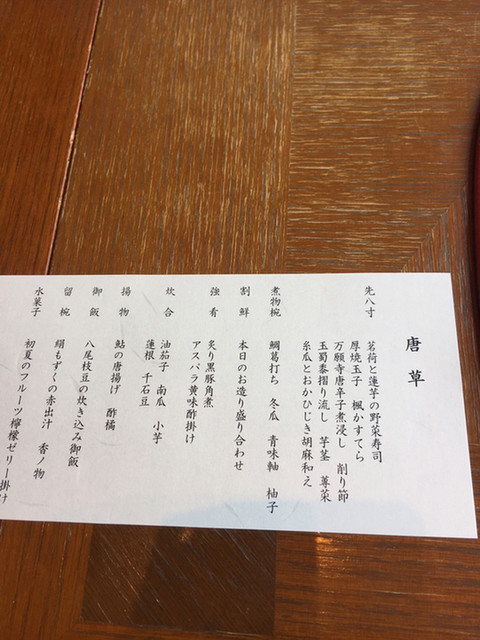 唐草
先八寸 茗荷と蓮芋の野菜寿司
厚焼玉子 楓かすてら
万願寺唐辛子煮浸し 削り節
玉蜀黍摺り流し 芋茎 蓴菜
糸瓜とおかひじき胡麻和え
煮物椀 鯛葛打ち 冬瓜 青味軸 柚子
割鮮 本日のお造り盛り合わせ
強肴 炙り黒豚角煮
アスパラ黄味酢掛け
炊合 油茄子 南瓜 小芋
蓮根 千石豆
揚物 鮎の唐揚げ 酢橘
御飯 八尾枝豆の炊き込み御飯
留椀 絹もずくの赤出汁 香ノ物
水菓子 初夏のフルーツ檸檬ゼリー掛け